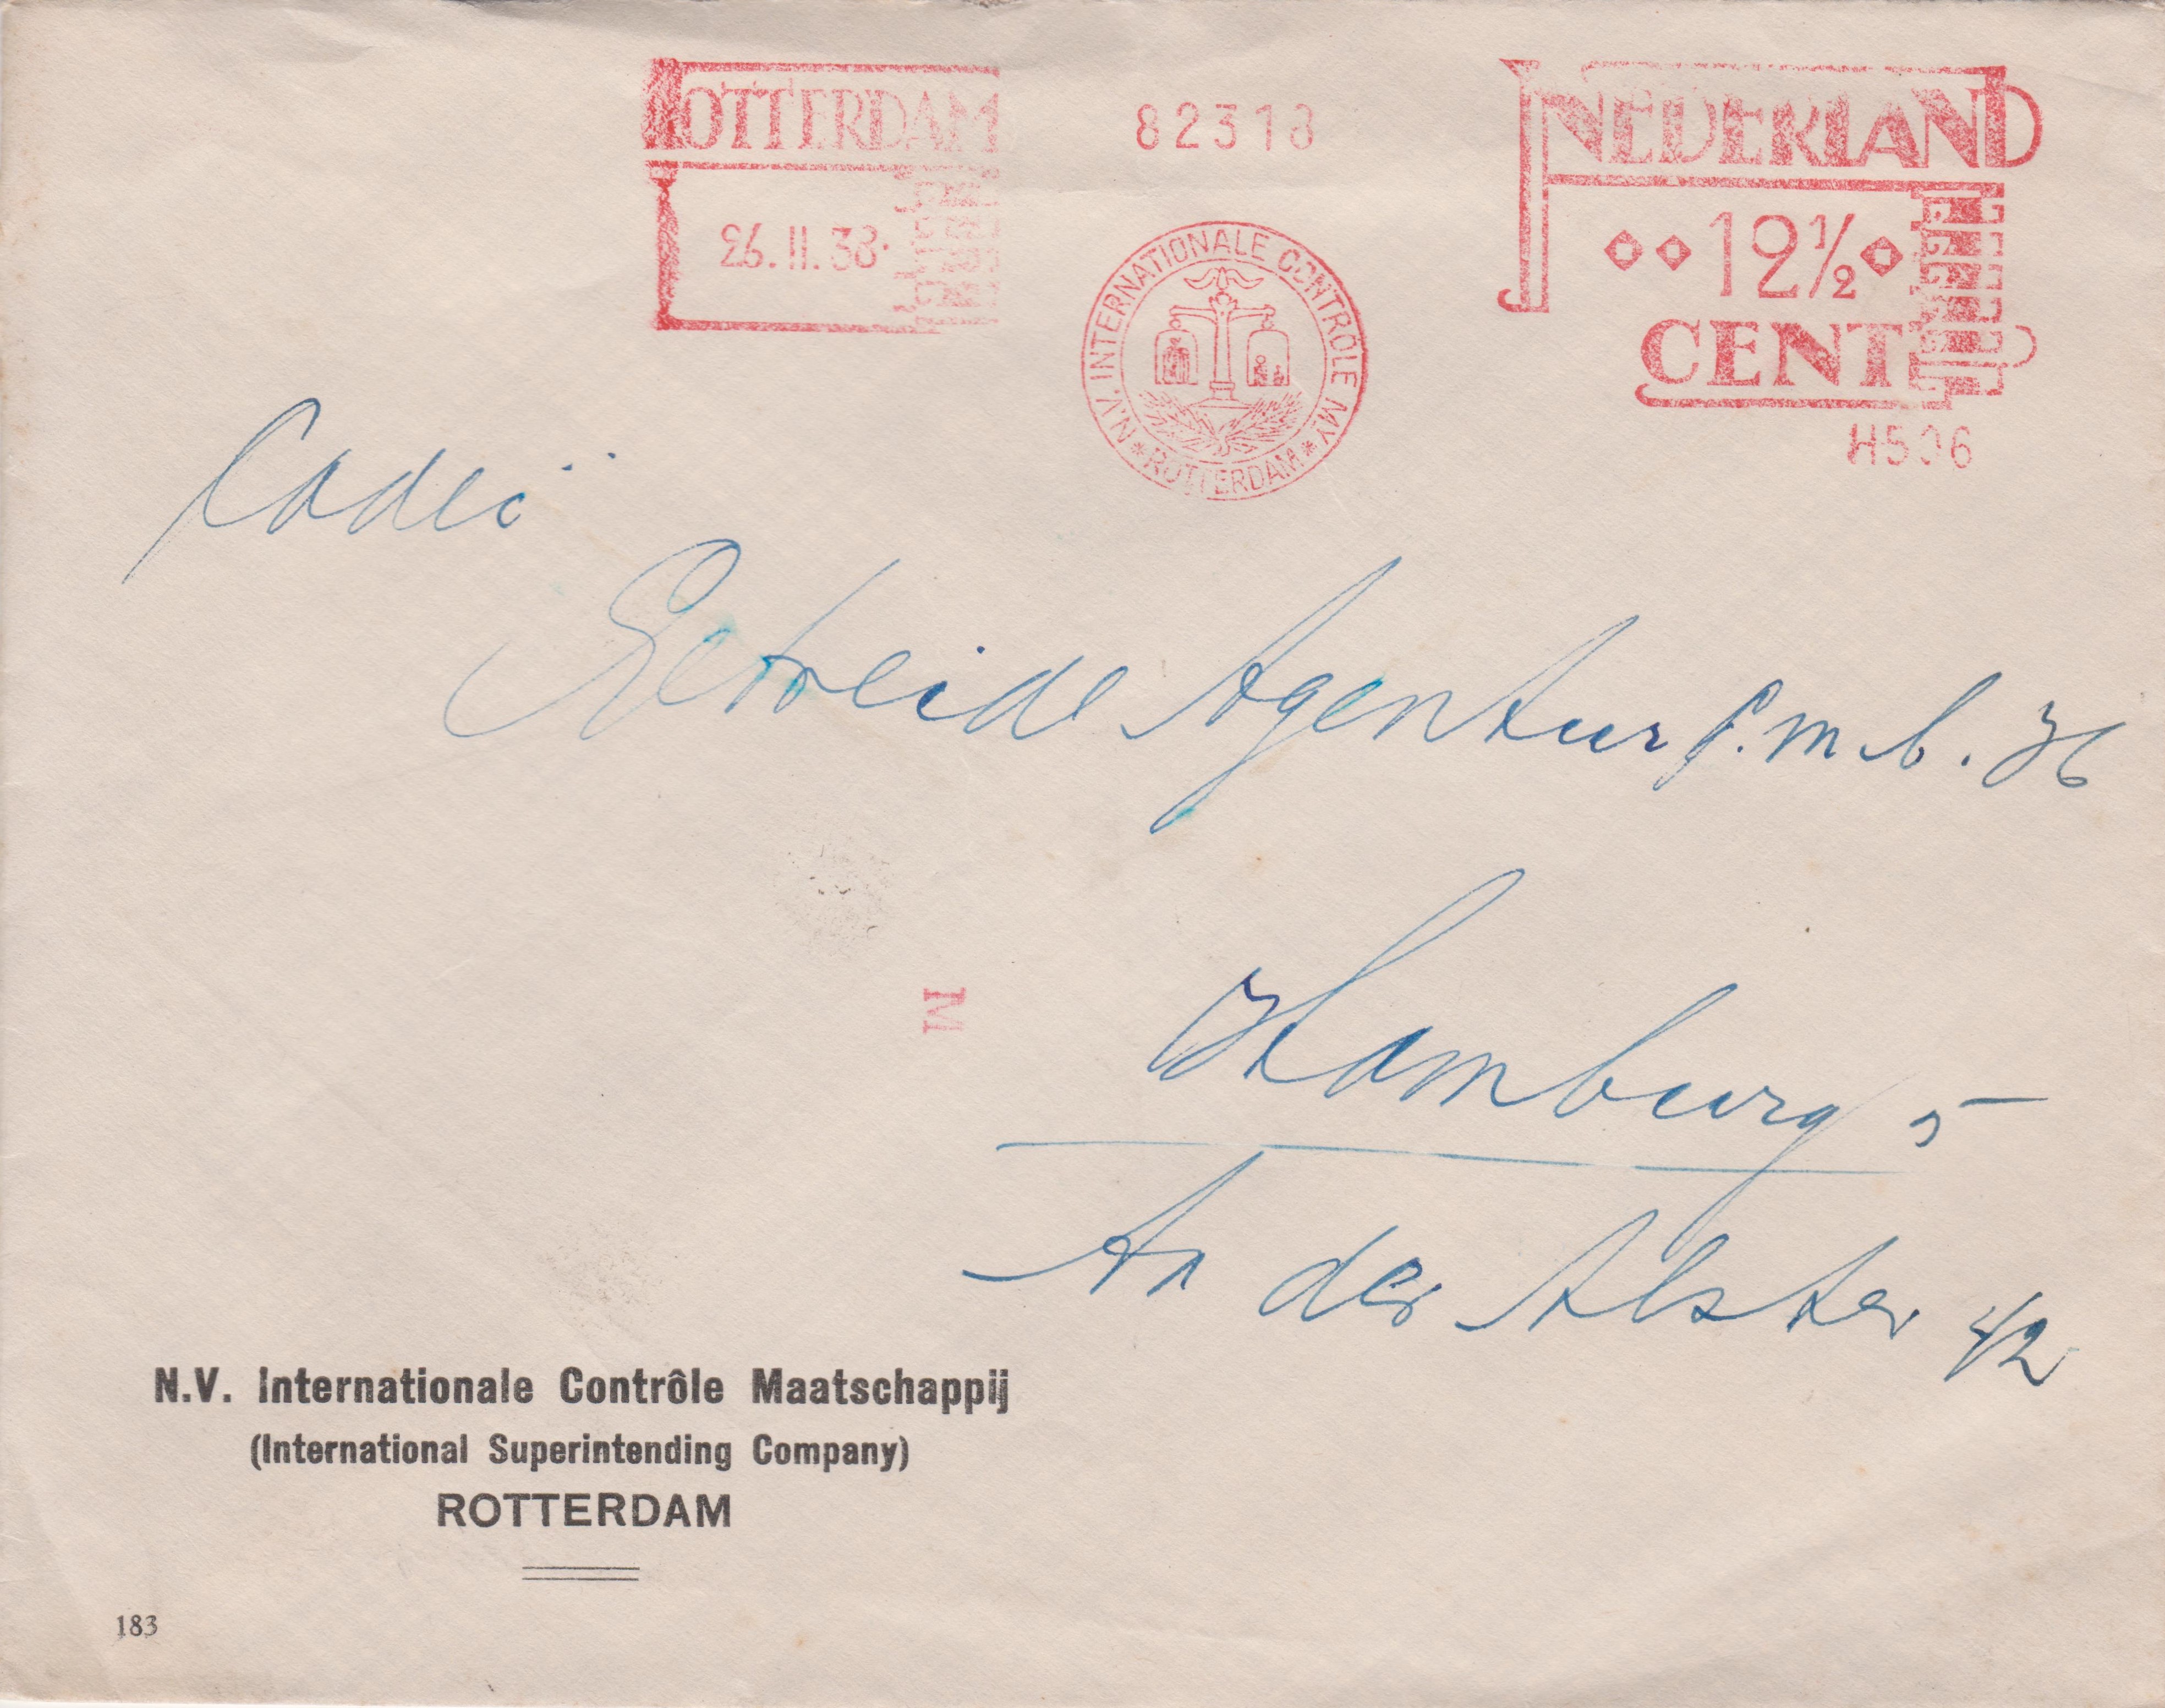 ROTTERDAM
82318
NEDERLAND
26.II.38.
12½
CENT
N.V. INTERNATIONALE CONTRÔLE MY.
* ROTTERDAM *
H506
"Cadec"
Getreide Agentur G.m.b.H
M
Hamburg 5
An der Alster
N.V. Internationale Contrôle Maatschappij
(International Superintending Company)
ROTTERDAM
183